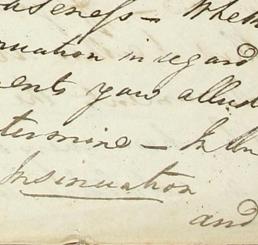 aseness – Wheth
nuation in regard
ents you allud
termine – In
Insinuation
and